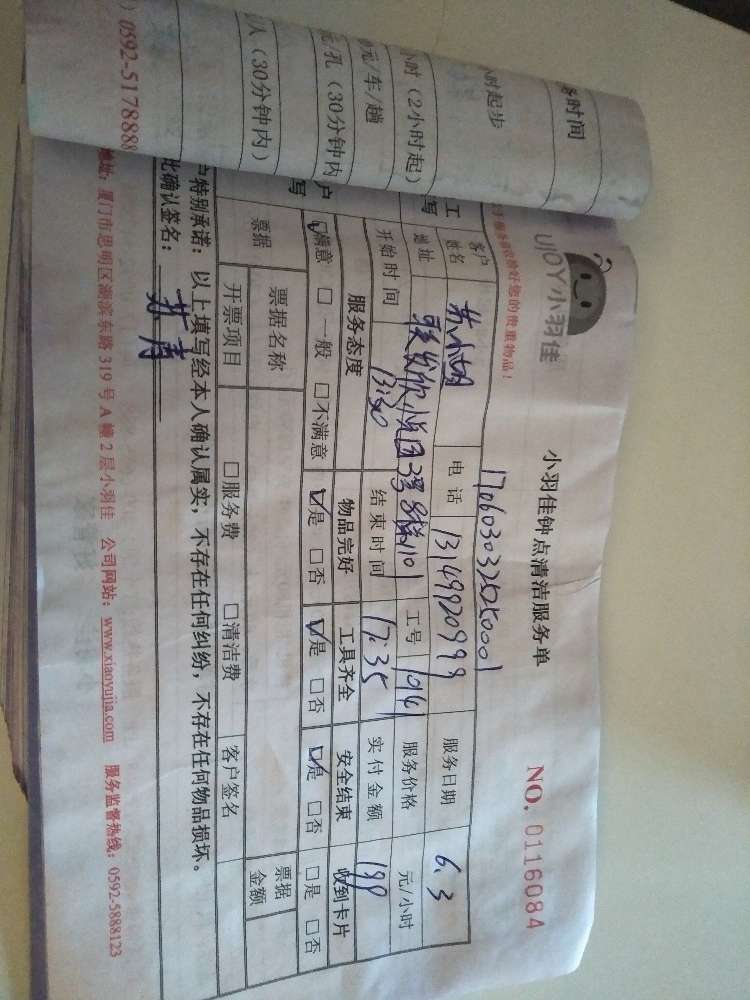 UIOY小羽佳
服务前请收拾好您的贵重物品！
小羽佳钟点清洁服务单
NO. 0116084
1706030325250001
客户姓名 电话 13149920999 服务日期 6.3
地址 3号 工号 10141 服务价格 元/小时
开始时间 13:30 结束时间 17:35 实付金额 199
服务态度 物品完好 工具齐全 安全结束 收到卡片
☑满意 □一般 □不满意 ☑是 □否 ☑是 □否 ☑是 □否 □是 □否
票据 票据名称 票据金额
开票项目 □服务费 □清洁费 客户签名
户特别承诺：以上填写经本人确认属实，不存在任何纠纷，不存在任何物品损坏。
此确认签名：
地址：厦门市思明区湖滨东路319号A幢2层小羽佳 公司网站：www.xiaoyujia.com 服务监督热线：0592-5888123
务时间
小时起步
小时（2小时起）
元/车/趟
元/孔（30分钟内
人（30分钟内）
）0592-5178888